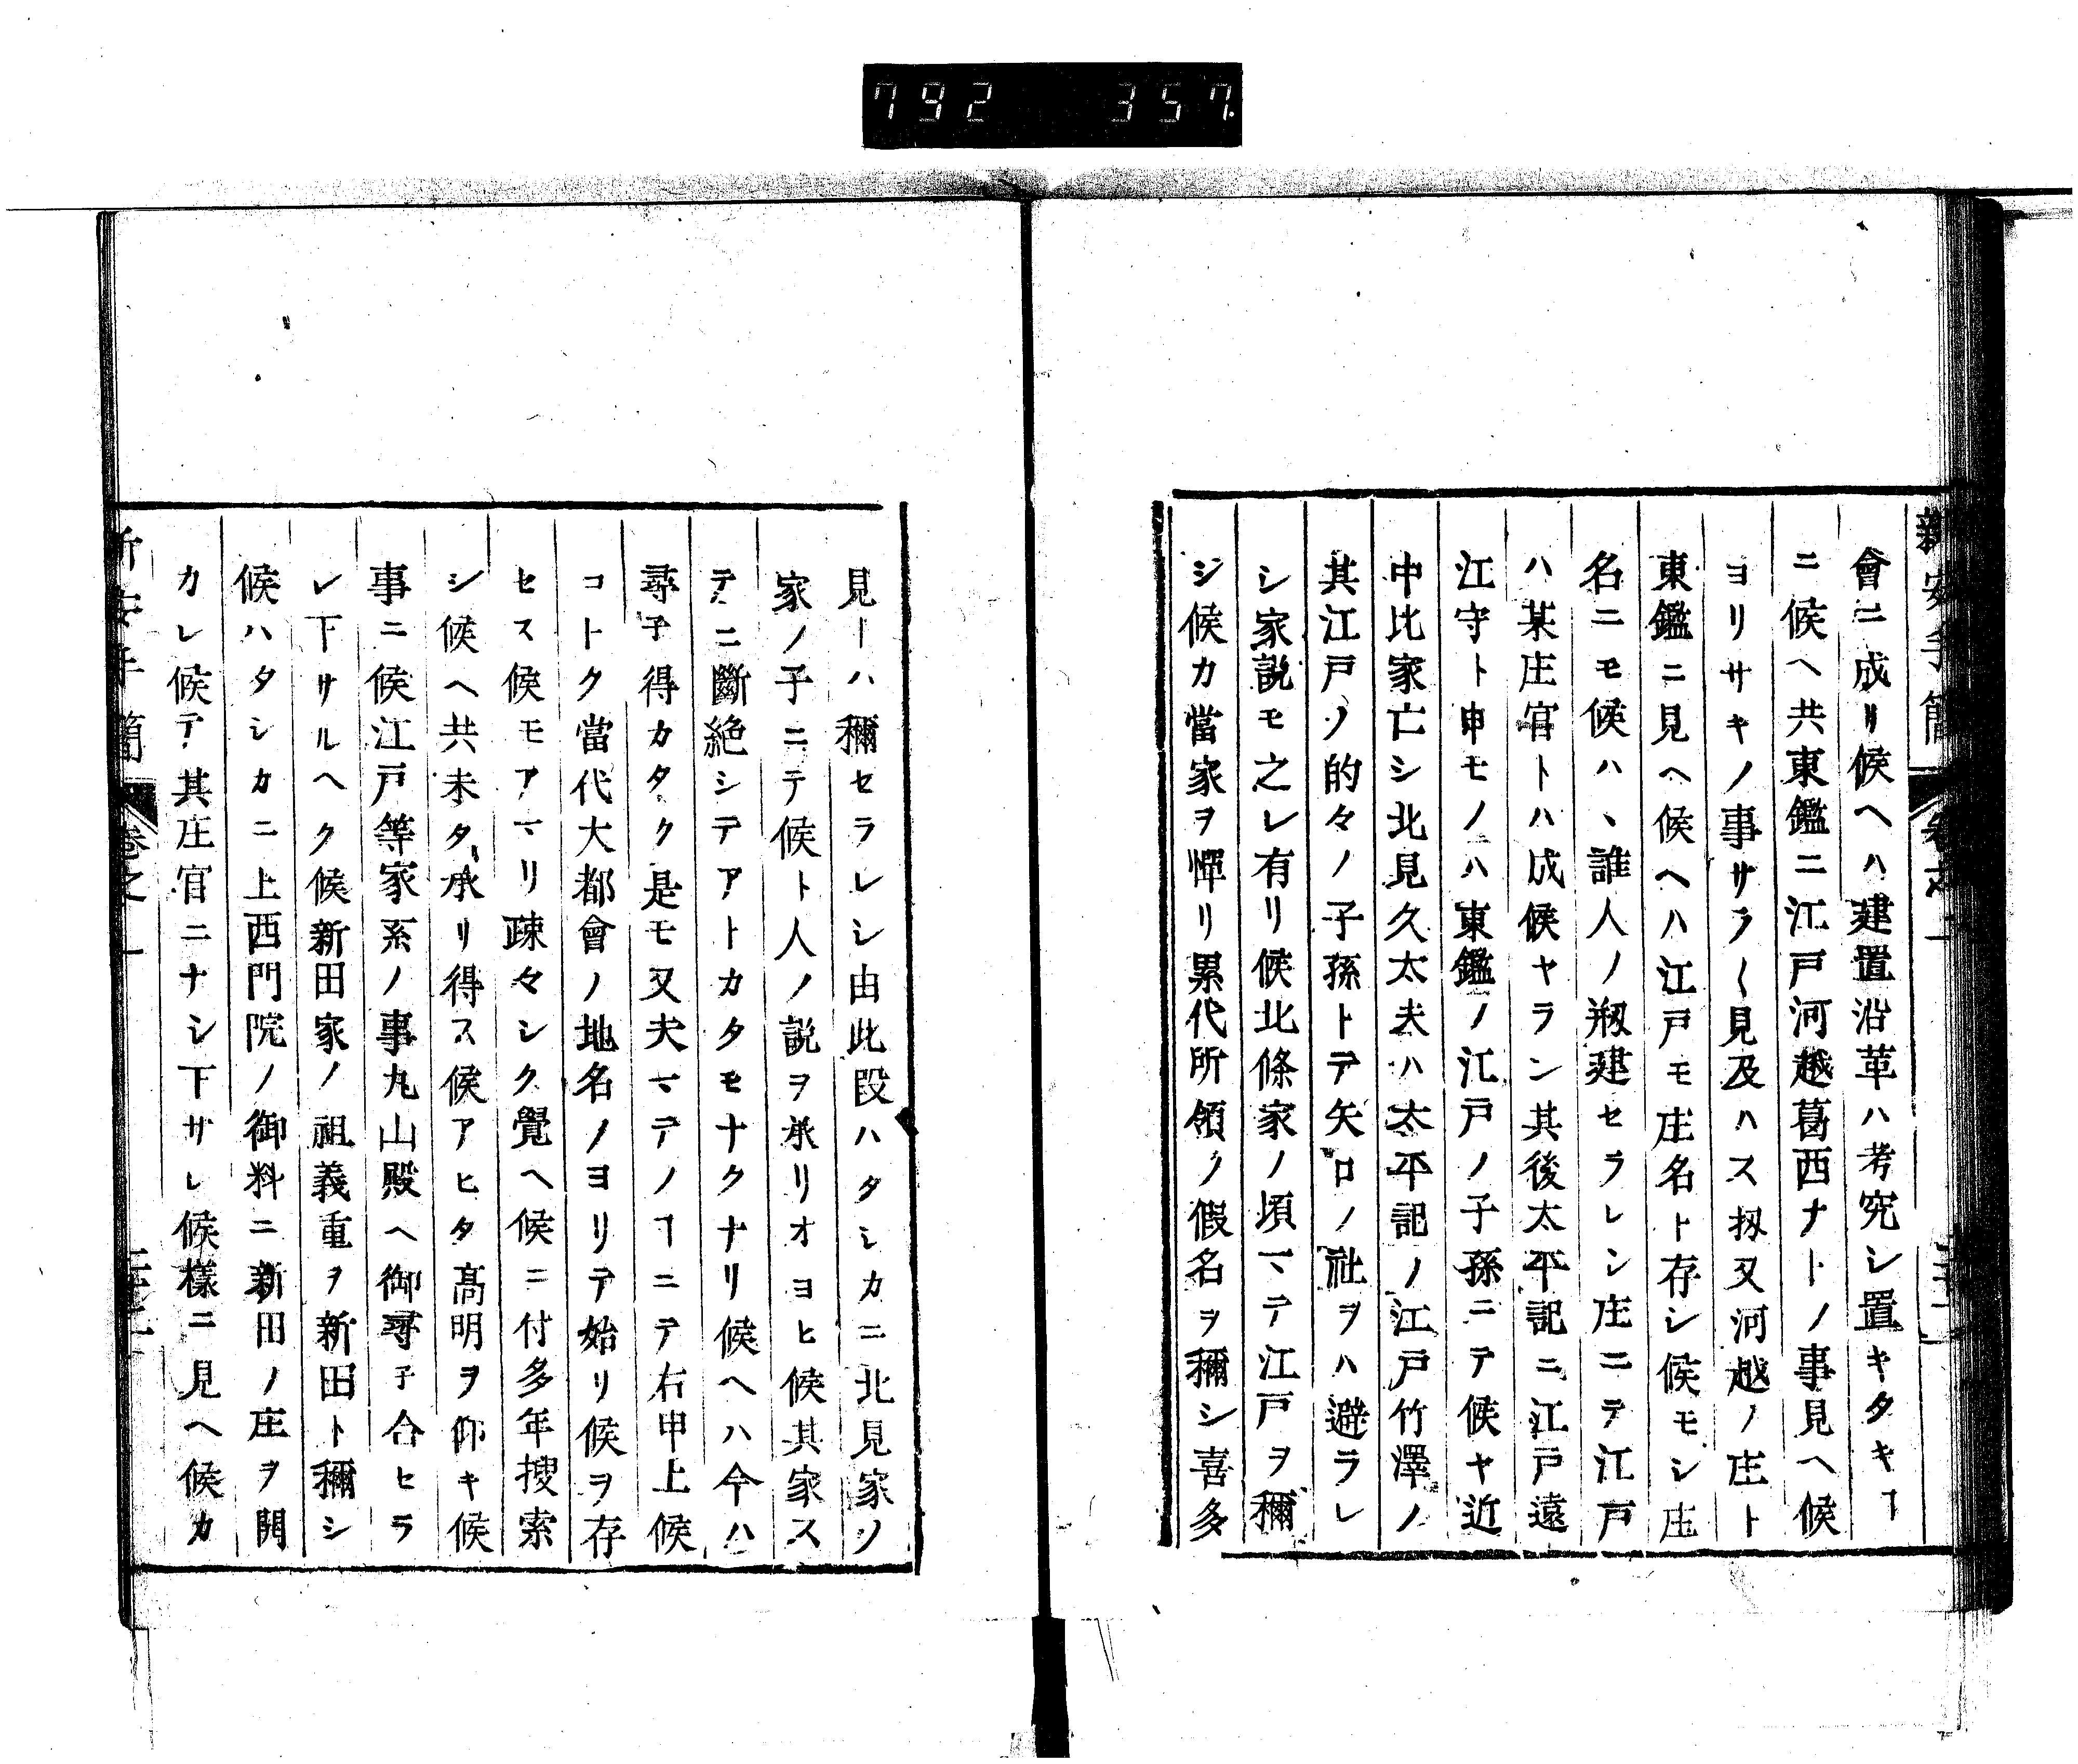 792 357
會ニ成リ候ヘハ建置沿革ハ考究シ置キタキヿ
ニ候ヘ共東鑑ニ江戸河越葛西ナトノ事見ヘ候
ヨリサキノ事サラ〱見及ハス扨又河越ノ庄ト
東鑑ニ見ヘ候ヘハ江戸モ庄名ト存シ候モシ庄
名ニモ候ハヽ誰人ノ剏建セラレシ庄ニテ江戸
ハ某庄官トハ成候ヤラン其後太平記ニ江戸遠
江守ト申モノハ東鑑ノ江戸ノ子孫ニテ候ヤ近
中比家亡シ北見久太夫ハ太平記ノ江戸竹澤ノ
其江戸ノ的々ノ子孫トテ矢口ノ社ヲハ避ラレ
シ家説モ之レ有リ候北條家ノ頃マテ江戸ヲ稱
ジ候カ當家ヲ憚リ累代所領ノ假名ヲ稱シ喜多
見ーハ稱セラレシ由此段ハタシカニ北見家ノ
家ノ子ニテ候ト人ノ説ヲ承リオヨヒ候其家ス
テニ斷絶シテアトカタモナクナリ候ヘハ今ハ
尋子得カタク是モ又夫マテノヿニテ右申上候
コトク當代大都會ノ地名ノヨリテ始リ候ヲ存
セス候モアマリ疎々シク覺ヘ候ニ付多年搜索
シ候ヘ共未タ承リ得ス候アヒタ高明ヲ仰キ候
事ニ候江戸等家系ノ事丸山殿ヘ御尋子合セラ
レ下サルヘク候新田家ノ祖義重ヲ新田ト稱シ
候ハタシカニ上西門院ノ御料ニ新田ノ庄ヲ開
カレ候テ其庄官ニナシ下サレ候樣ニ見ヘ候カ
新安手簡 卷之一